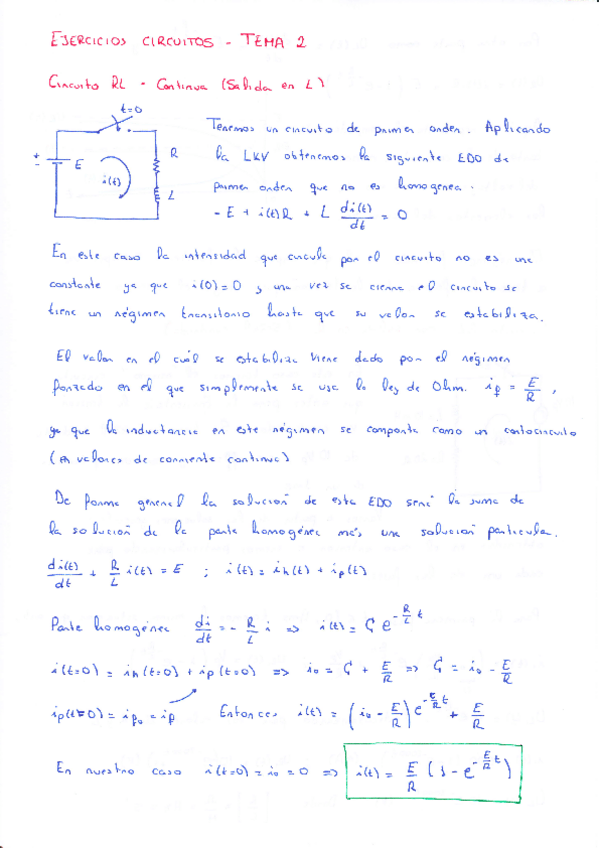 EJERCICIOS CIRCUITOS - TEMA 2
Circuito RL - Continua (Salida en L)
t=0
+
-
E
i(t)
R
L
Tenemos un circuito de primer orden. Aplicando
la LKV obtenemos la siguiente EDO de
primer orden que no es homogenea.
- E + i(t)R + L di(t)/dt = 0
En este caso la intensidad que circula por el circuito no es una
constante ya que i(0)=0 y una vez se cierra el circuito se
tiene un régimen transitorio hasta que su valor se estabiliza.
El valor en el cuál se estabiliza viene dado por el régimen
forzado en el que simplemente se usa la ley de Ohm. i_f = E/R ,
ya que la inductancia en este régimen se comporta como un cortocircuito
(en valores de corriente continua)
De forma general la solución de esta EDO será la suma de
la solución de la parte homogénea más una solución particular.
di(t)/dt + R/L i(t) = E ; i(t) = i_h(t) + i_p(t)
Parte homogénea di/dt = - R/L i => i(t) = C e^(-R/L t)
i(t=0) = i_h(t=0) + i_p(t=0) => i_0 = C + E/R => C = i_0 - E/R
i_p(t=0) = i_p0 = i_f Entonces i(t) = (i_0 - E/R) e^(-E/R t) + E/R
En nuestro caso i(t=0) = i_0 = 0 => i(t) = E/R (1 - e^(-E/R t))